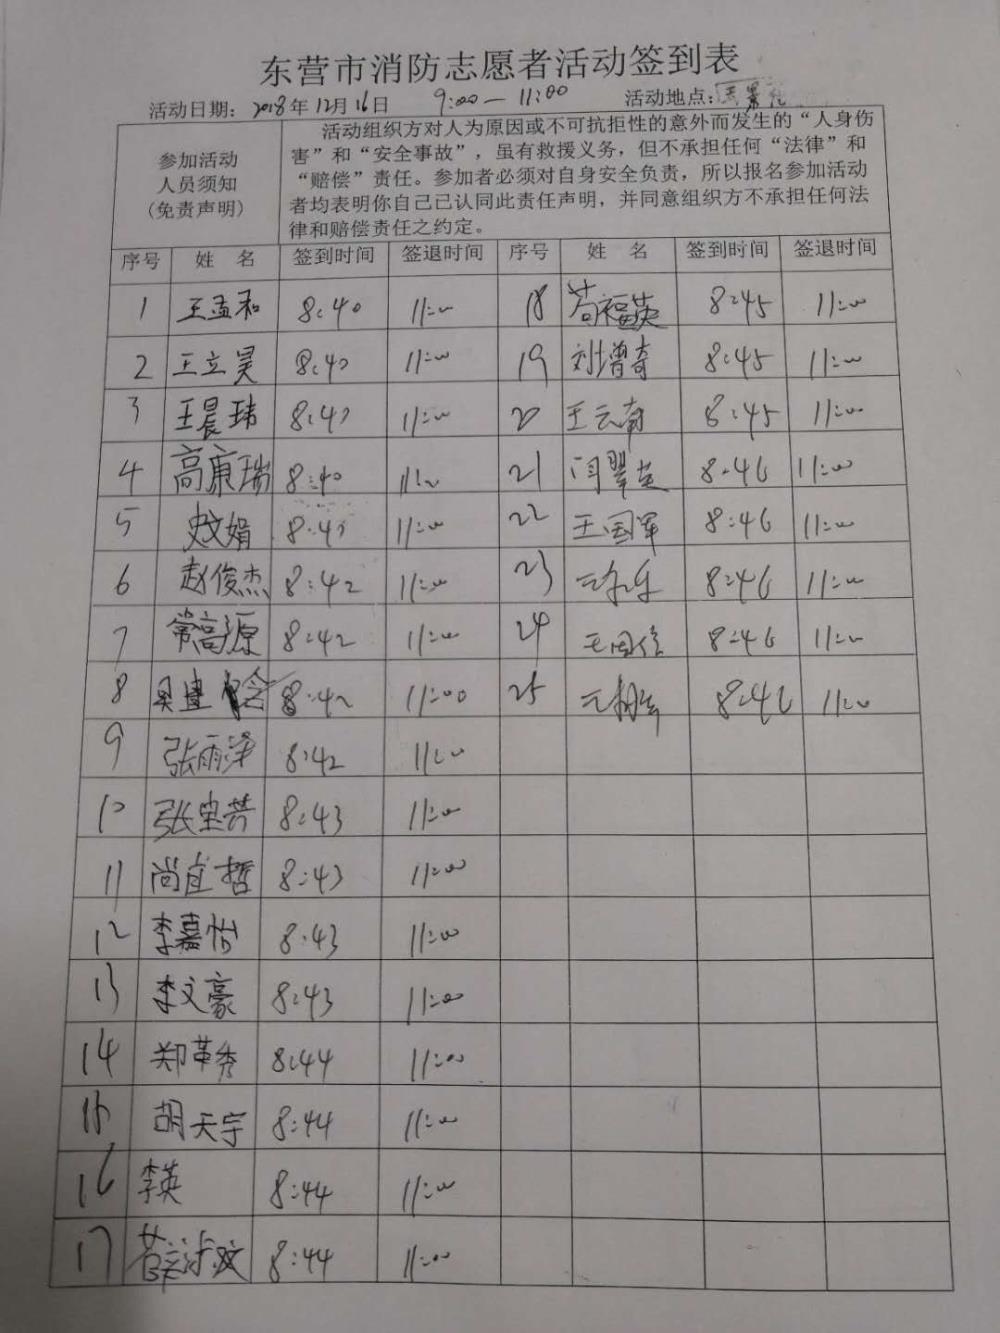 东营市消防志愿者活动签到表
活动日期：2018年12月16日 9:00—11:00 活动地点：
参加活动
人员须知
(免责声明)
活动组织方对人为原因或不可抗拒性的意外而发生的“人身伤
害”和“安全事故”，虽有救援义务，但不承担任何“法律”和
“赔偿”责任。参加者必须对自身安全负责，所以报名参加活动
者均表明你自己已认同此责任声明，并同意组织方不承担任何法
律和赔偿责任之约定。
序号 姓 名 签到时间 签退时间 序号 姓 名 签到时间 签退时间
1 王孟和 8:40 11:00 18 苟福英 8:45 11:00
2 王立昊 8:40 11:00 19 刘增奇 8:45 11:00
3 王晨玮 8:40 11:00 20 王云南 8:45 11:00
4 高康瑞 8:40 11:00 21 闫翠英 8:46 11:00
5 史文娟 8:40 11:00 22 王国军 8:46 11:00
6 赵俊杰 8:42 11:00 23 8:46 11:00
7 常高源 8:42 11:00 24 王国信 8:46 11:00
8 8:42 11:00 25 8:46 11:00
9 张雨泽 8:42 11:00
10 张忠芳 8:43 11:00
11 尚宜哲 8:43 11:00
12 李嘉怡 8:43 11:00
13 李文豪 8:43 11:00
14 郑革秀 8:44 11:00
15 胡天宇 8:44 11:00
16 李英 8:44 11:00
17 8:44 11:00